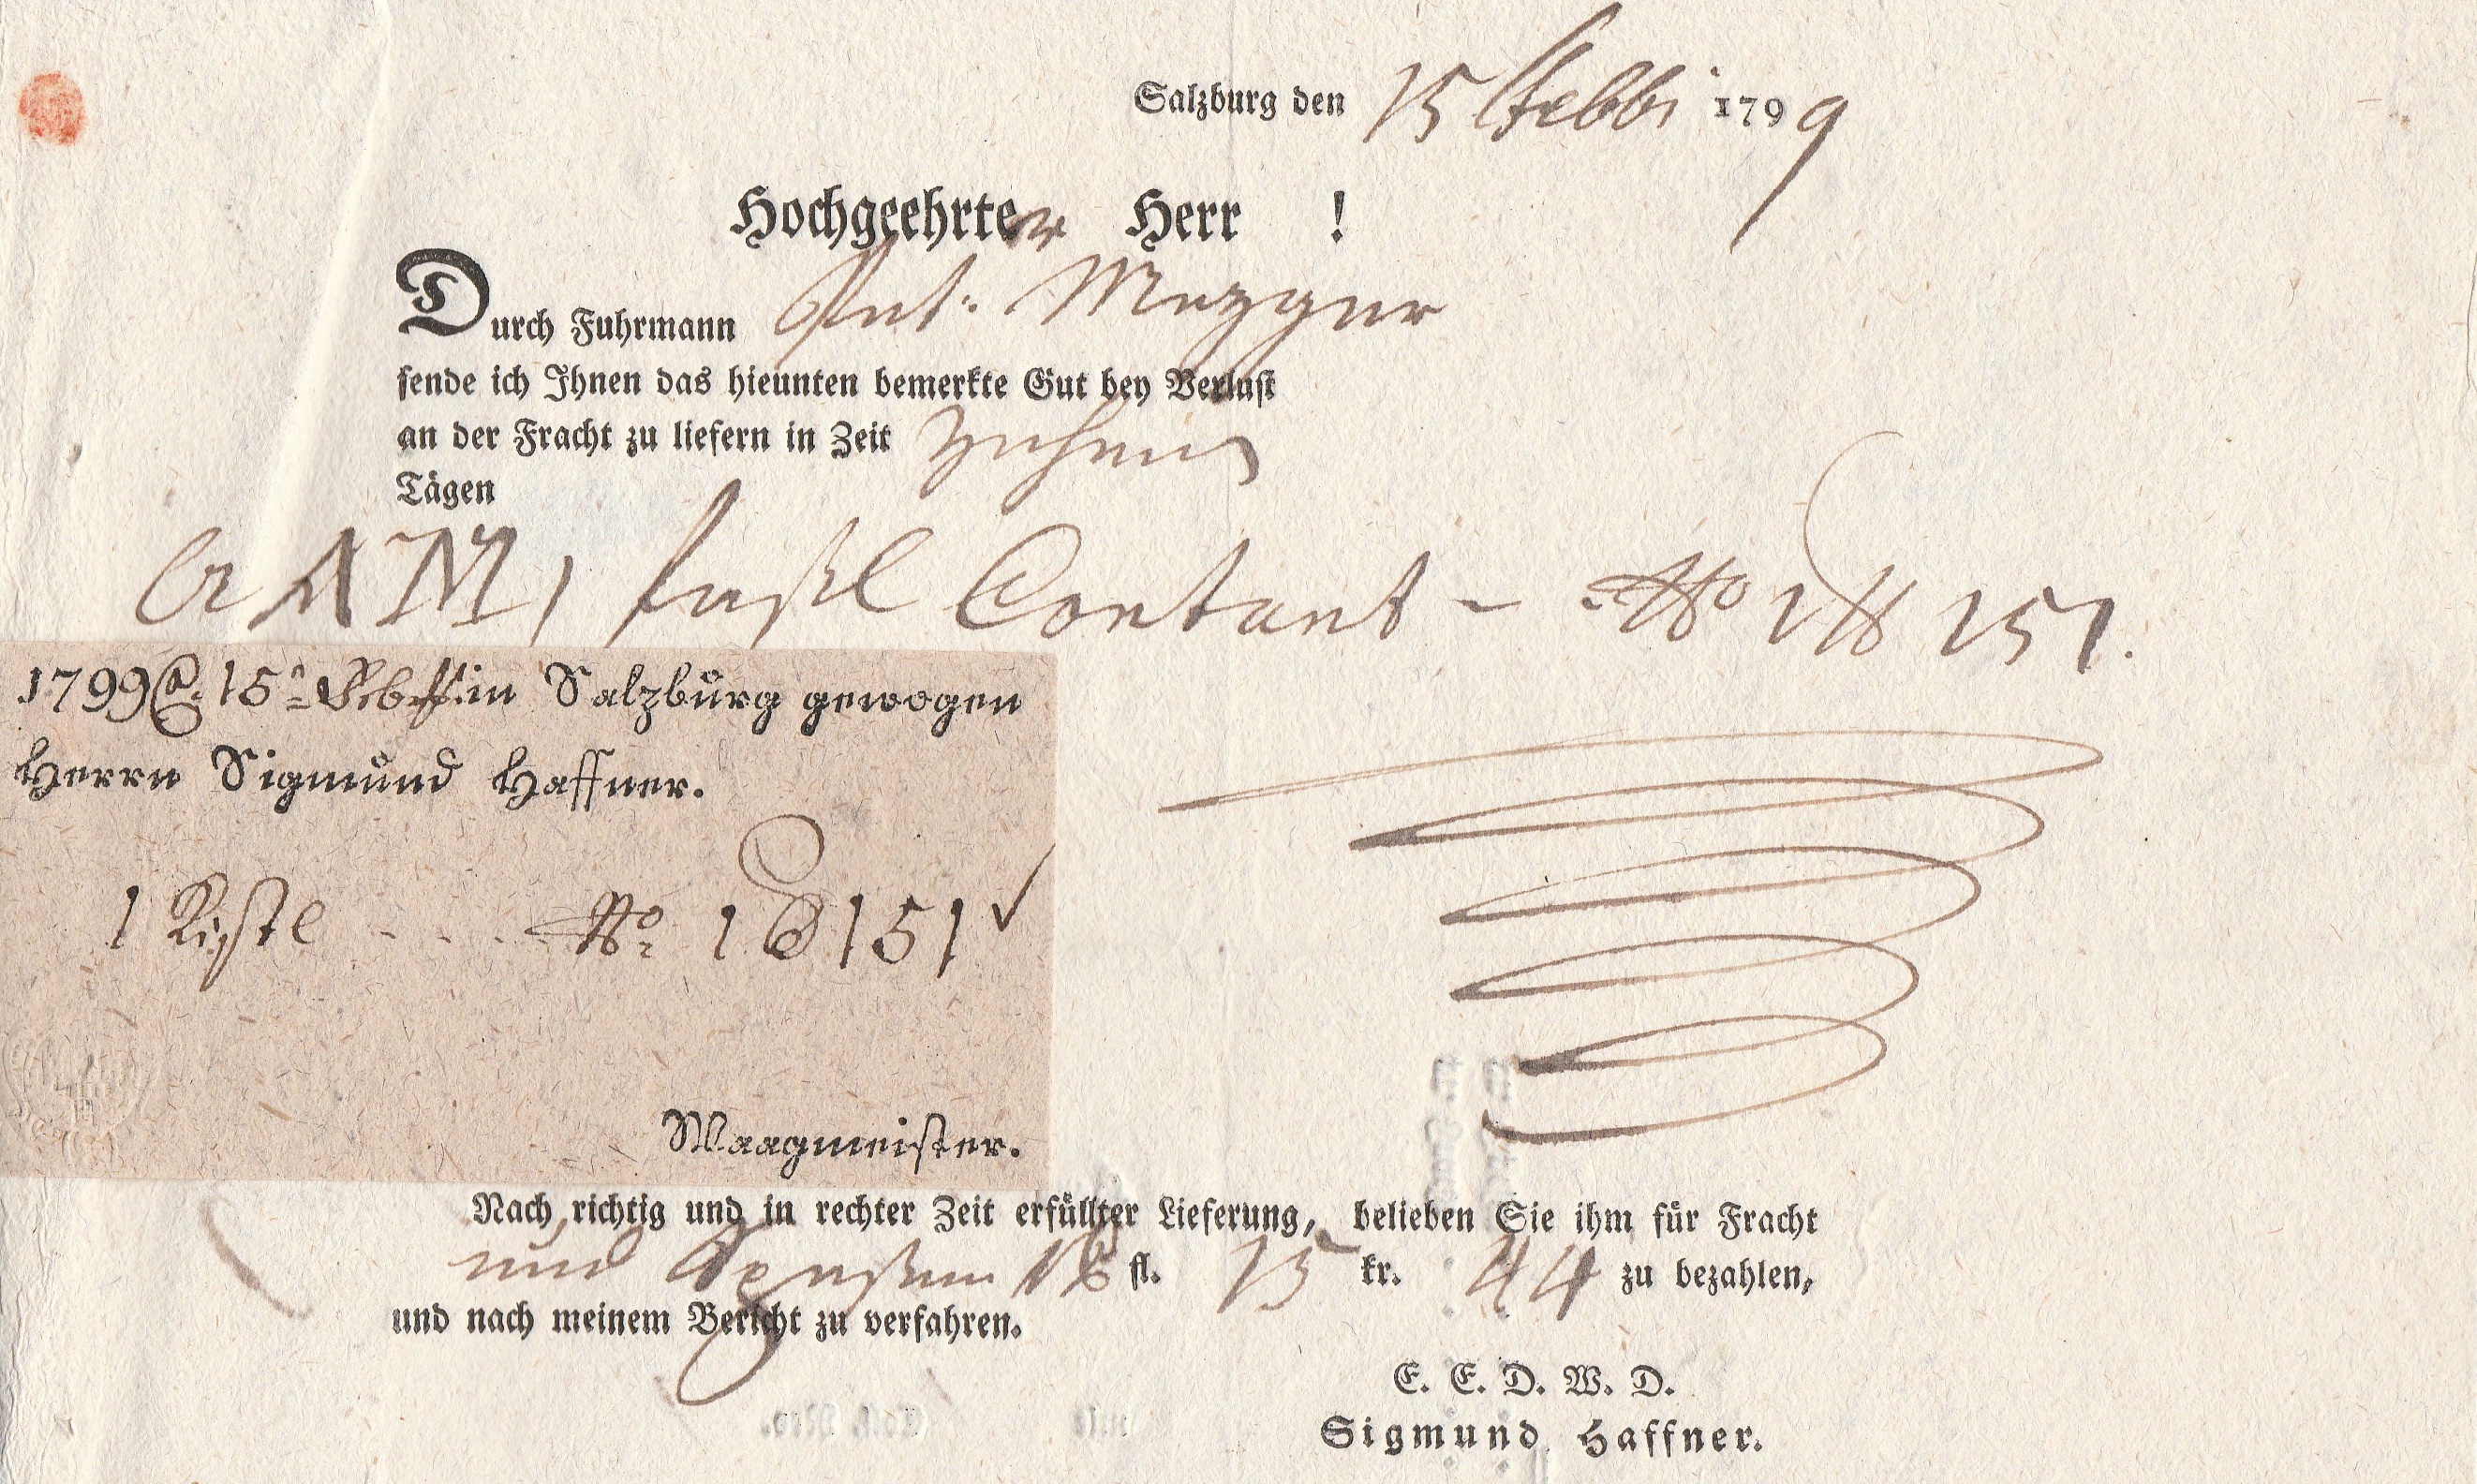 Salzburg den 15 Febbr 1799
Hochgeehrter Herr !
Durch Fuhrmann Ant: Mezger
sende ich Ihnen das hieunten bemerkte Gut bey Verlust
an der Fracht zu liefern in Zeit
Tägen
AM 1 faßl Contant - No 1 ℔ 151.
1799 15 in Salzbürg gewogen
Herrn Sigmünd Haffner.
1 Kistl . . . . No. 1 ℔ 151
Waagmeister.
Nach richtig und in rechter Zeit erfüllter Lieferung, belieben Sie ihm für Fracht
und fl. 15 kr. 44 zu bezahlen,
und nach meinem Bericht zu verfahren.
E. E. D. W. D.
Sigmund Haffner.